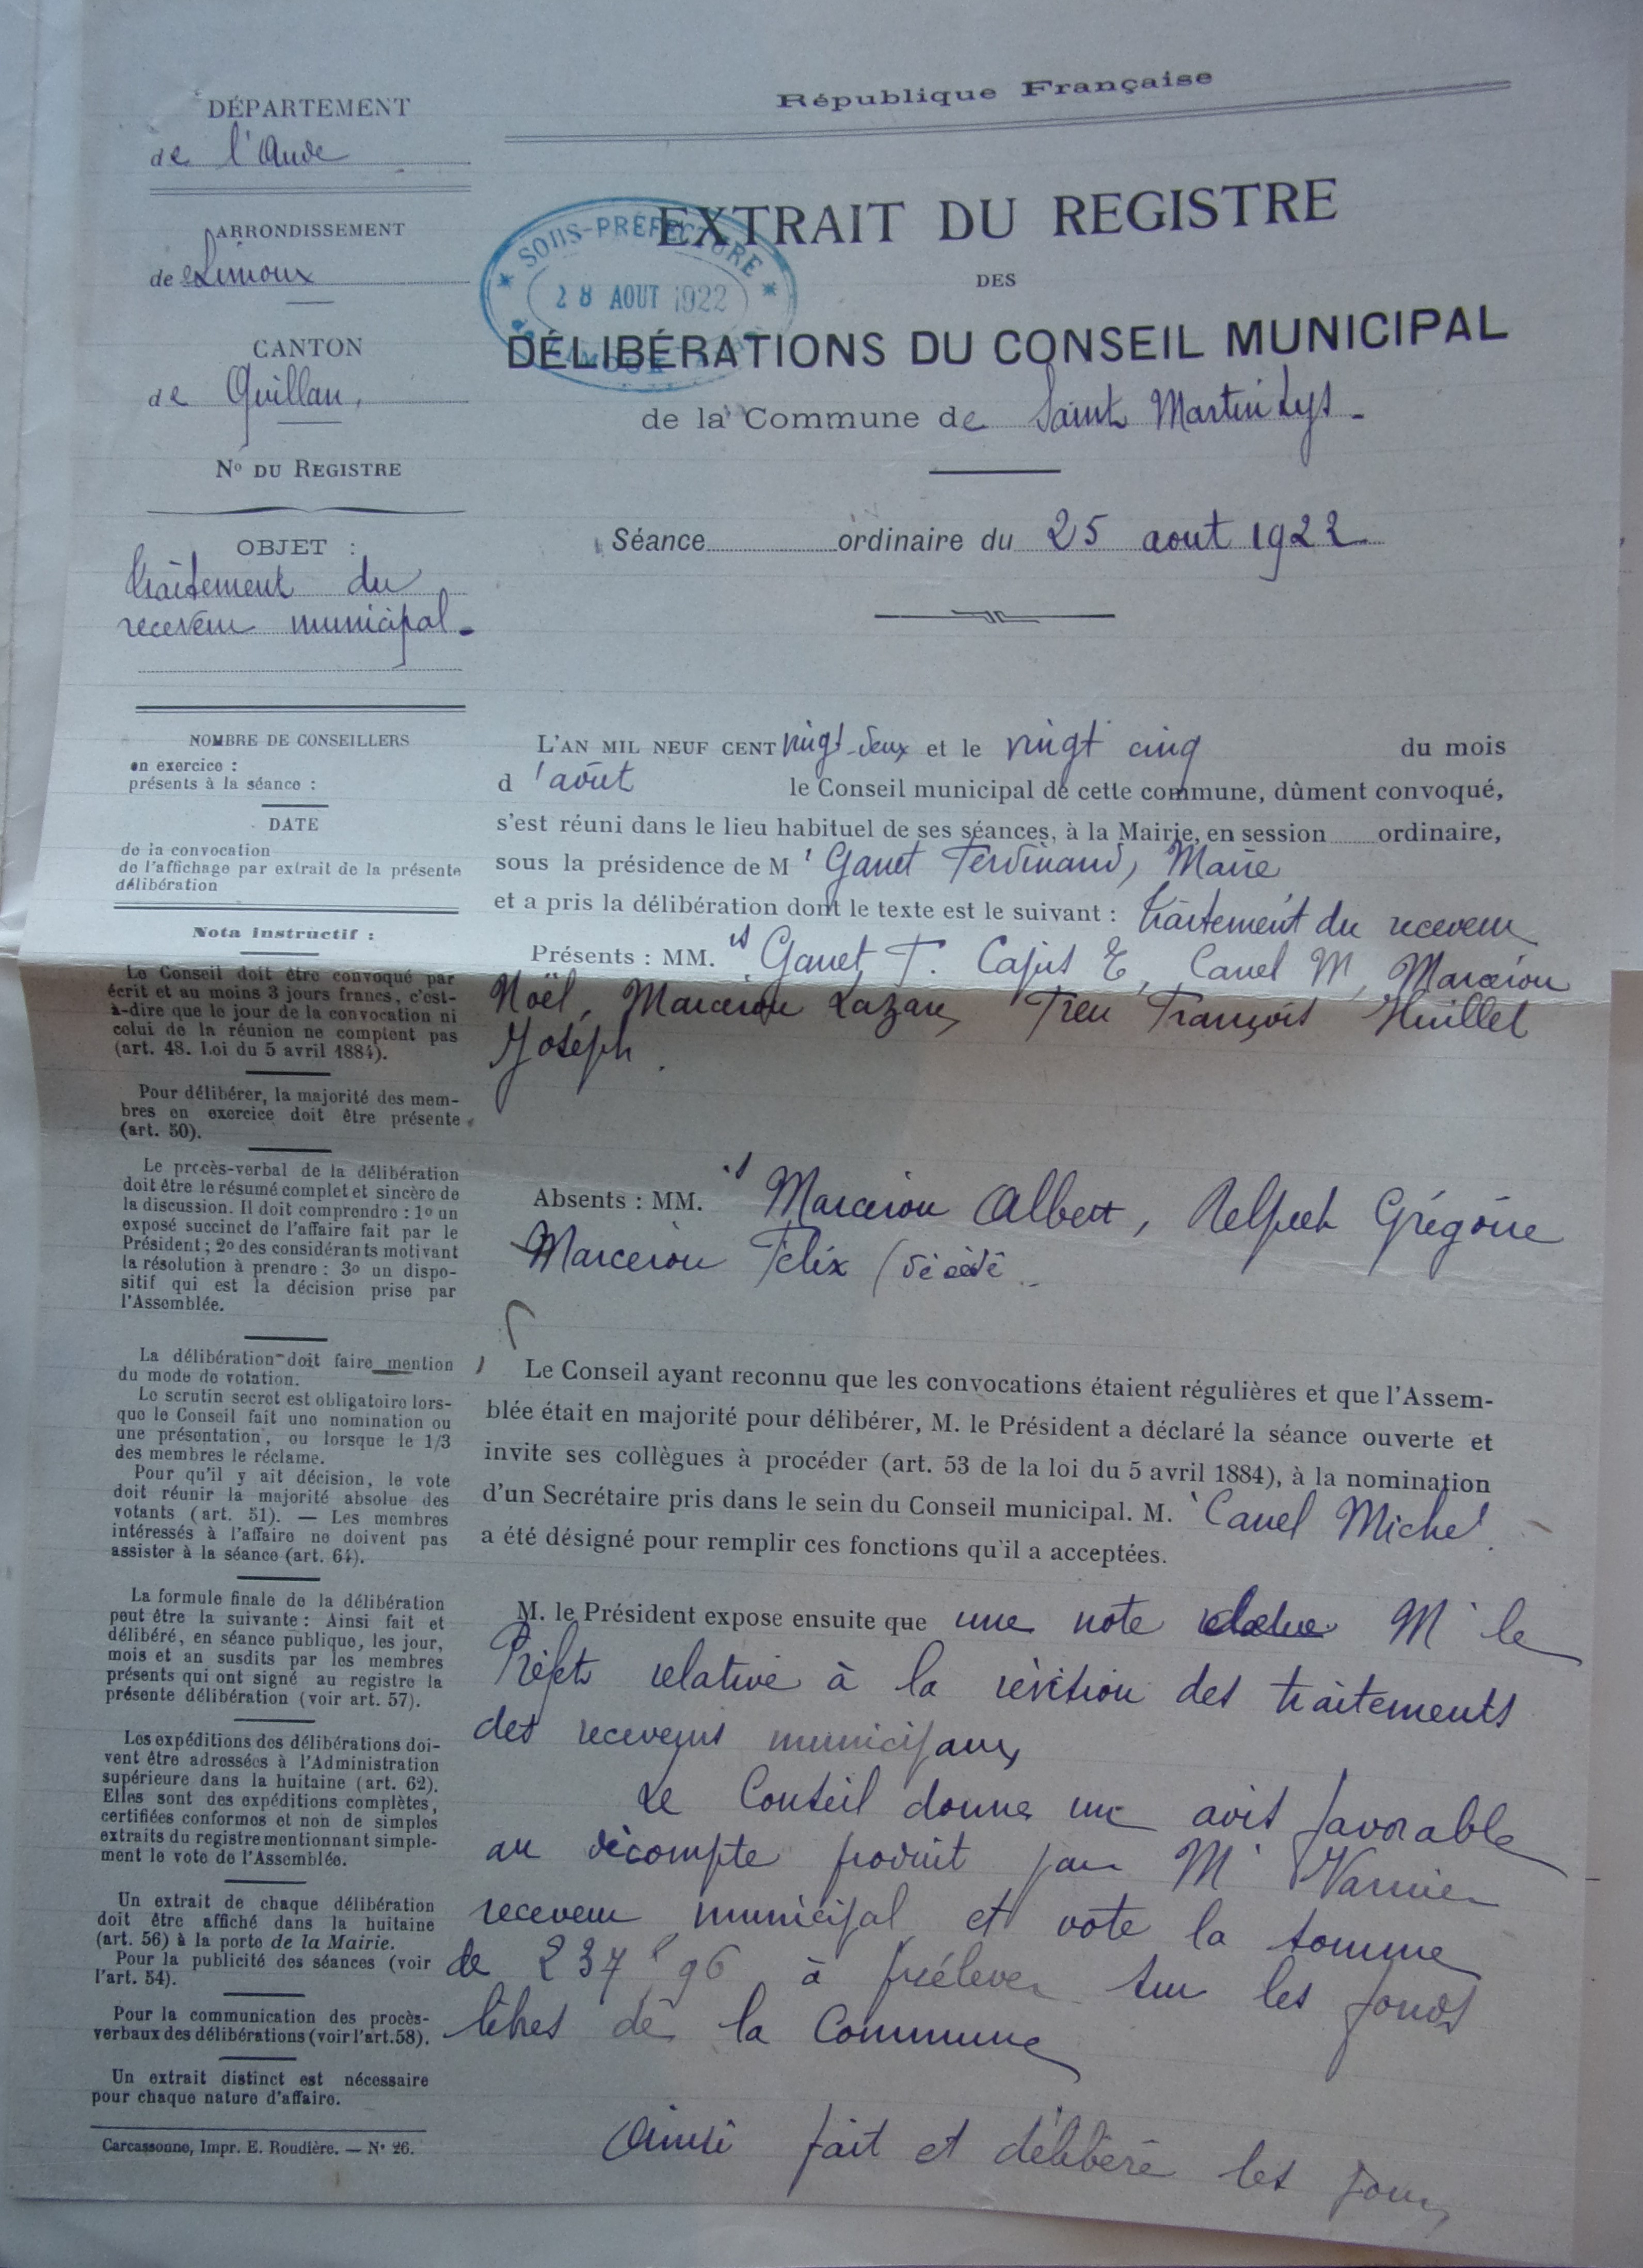 République Française
DÉPARTEMENT
de l'Aude
ARRONDISSEMENT
de Limoux
CANTON
de Quillan,
No DU REGISTRE
OBJET :
traitement du
receveur municipal.
SOUS-PRÉFECTURE
28 AOUT 1922
EXTRAIT DU REGISTRE
DES
DÉLIBÉRATIONS DU CONSEIL MUNICIPAL
de la Commune de Saint Martin Lys -
Séance ordinaire du 25 aout 1922
NOMBRE DE CONSEILLERS
en exercice :
présents à la séance :
DATE
de la convocation
de l'affichage par extrait de la présente
délibération
Nota instructif :
Le Conseil doit être convoqué par
écrit et au moins 3 jours francs, c'est-
à-dire que le jour de la convocation ni
celui de la réunion ne comptent pas
(art. 48. Loi du 5 avril 1884).
Pour délibérer, la majorité des mem-
bres en exercice doit être présente
(art. 50).
Le procès-verbal de la délibération
doit être le résumé complet et sincère de
la discussion. Il doit comprendre : 1o un
exposé succinct de l'affaire fait par le
Président ; 2o des considérants motivant
la résolution à prendre : 3o un dispo-
sitif qui est la décision prise par
l'Assemblée.
La délibération doit faire mention
du mode de votation.
Le scrutin secret est obligatoire lors-
que le Conseil fait une nomination ou
une présentation, ou lorsque le 1/3
des membres le réclame.
Pour qu'il y ait décision, le vote
doit réunir la majorité absolue des
votants (art. 51). — Les membres
intéressés à l'affaire ne doivent pas
assister à la séance (art. 64).
La formule finale de la délibération
peut être la suivante : Ainsi fait et
délibéré, en séance publique, les jour,
mois et an susdits par les membres
présents qui ont signé au registre la
présente délibération (voir art. 57).
Les expéditions des délibérations doi-
vent être adressées à l'Administration
supérieure dans la huitaine (art. 62).
Elles sont des expéditions complètes,
certifiées conformes et non de simples
extraits du registre mentionnant simple-
ment le vote de l'Assemblée.
Un extrait de chaque délibération
doit être affiché dans la huitaine
(art. 56) à la porte de la Mairie.
Pour la publicité des séances (voir
l'art. 54).
Pour la communication des procès-
verbaux des délibérations (voir l'art. 58).
Un extrait distinct est nécessaire
pour chaque nature d'affaire.
Carcassonne, Impr. E. Roudière. — No 26.
L'AN MIL NEUF CENT vingt-deux et le vingt cinq du mois
d'août le Conseil municipal de cette commune, dûment convoqué,
s'est réuni dans le lieu habituel de ses séances, à la Mairie, en session ordinaire,
sous la présidence de M r Ganet Ferdinand, Maire
et a pris la délibération dont le texte est le suivant : traitement du receveur
Présents : MM. rs Ganet F. Cajus E, Canel M, Marcerou
Noël, Marcerou Lazare, Treu François Huillet
Joseph.
Absents : MM. rs Marcerou Albert, Grégoire
Marcerou Félix (décédé
Le Conseil ayant reconnu que les convocations étaient régulières et que l'Assem-
blée était en majorité pour délibérer, M. le Président a déclaré la séance ouverte et
invite ses collègues à procéder (art. 53 de la loi du 5 avril 1884), à la nomination
d'un Secrétaire pris dans le sein du Conseil municipal. M. Canel Michel
a été désigné pour remplir ces fonctions qu'il a acceptées.
M. le Président expose ensuite que une note M r le
Préfet relative à la révision des traitements
des receveurs municipaux
Le Conseil donne un avis favorable
au décompte produit par M r Varnier
receveur municipal et vote la somme
de 237 f 96 à prélever sur les fonds
libres de la Commune
Ainsi fait et délibéré les jour,